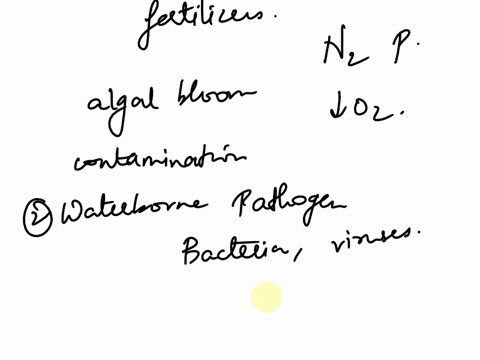 fertilizers.
N2 P.
algal bloom
↓O2.
contamination
② Waterborne Pathogen
Bacteria, viruses.